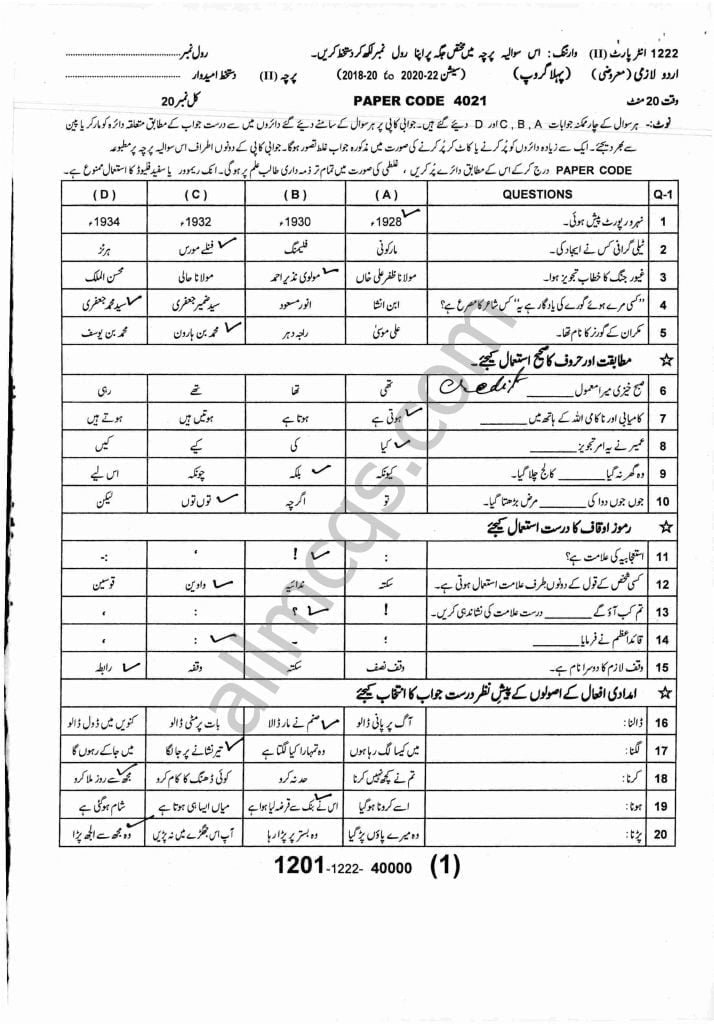 1222 انٹر پارٹ (II) وارننگ: اس سوالیہ پرچہ میں مختص جگہ پر اپنا رول نمبر لکھ کر دستخط کریں۔ رول نمبر
اردو لازمی (معروضی) (پہلا گروپ) (سیشن 22-2020 to 20-2018) پرچہ (II) دستخط امیدوار
وقت 20 منٹ PAPER CODE 4021 کل نمبر 20
نوٹ:- ہر سوال کے چار ممکنہ جوابات C, B, A اور D دیئے گئے ہیں۔ جوابی کاپی پر ہر سوال کے سامنے دیئے گئے دائروں میں سے درست جواب کے مطابق متعلقہ دائرہ کو مارکر یا پین
سے بھر دیجئے۔ ایک سے زیادہ دائروں کو پُر کرنے یا کاٹ کر پُر کرنے کی صورت میں مذکورہ جواب غلط تصور ہوگا۔ جوابی کاپی کے دونوں اطراف اس سوالیہ پرچہ پر مطبوعہ
PAPER CODE درج کر کے اس کے مطابق دائرے پُر کریں، غلطی کی صورت میں تمام تر ذمہ داری طالب علم پر ہوگی۔ انک ریموور یا سفید فلیوڈ کا استعمال ممنوع ہے۔
Q-1 QUESTIONS (A) (B) (C) (D)
1 نہرو رپورٹ پیش ہوئی۔ 1928ء 1930ء 1932ء 1934ء
2 ٹیلی گرافی کس نے ایجاد کی۔ مارکونی فلیمنگ فنلے مورس ہرٹز
3 غیور جنگ کا خطاب تجویز ہوا۔ مولانا ظفر علی خاں مولوی نذیر احمد مولانا حالی محسن الملک
4 "کسی مرے ہوئے گورے کی یادگار ہے یہ" کس شاعر کا مصرع ہے؟ ابن انشا انور مسعود سید ضمیر جعفری سید محمد جعفری
5 مکران کے گورنر کا نام تھا۔ علی موسیٰ راجہ دہر محمد بن ہارون محمد بن یوسف
☆ مطابقت اور حروف کا صحیح استعمال کیجئے۔
6 صبح خیزی میرا معمول ______ تھی تھا تھے رہی
Credit
7 کامیابی اور ناکامی اللہ کے ہاتھ میں ______ ہوتی ہے ہوتا ہے ہوتیں ہیں ہوتے ہیں
8 عمیر نے یہ امر تجویز ______ کیا کی کیے کیں
9 وہ گھر نہ گیا ______ کالج چلا گیا۔ کیونکہ بلکہ چونکہ اس لیے
10 جوں جوں دوا کی ______ مرض بڑھتا گیا۔ تو اگرچہ توں توں لیکن
☆ رموز اوقاف کا درست استعمال کیجئے
11 استعجابیہ کی علامت ہے؟ : ! ، :-
12 کسی شخص کے قول کے دونوں طرف علامت استعمال ہوتی ہے۔ سکتہ ندائیہ واوین قوسین
13 تم کب آؤ گے ______ درست علامت کی نشاندہی کریں۔ ! ؟ : ،
14 قائداعظم نے فرمایا ______ ؛ ۔ : ،
15 وقف لازم کا دوسرا نام ہے۔ وقف نصف سکتہ وقفہ رابطہ
☆ امدادی افعال کے اصولوں کے پیش نظر درست جواب کا انتخاب کیجئے
16 ڈالنا: آگ پر پانی ڈالو صنم نے مار ڈالا بات پر مٹی ڈالو کنویں میں ڈول ڈالو
17 لگنا: میں کیسا لگ رہا ہوں وہ تمہارا کیا لگتا ہے تیر نشانے پر جا لگا میں جا کے رہوں گا
18 کرنا: تم نے کچھ نہیں کرنا حد نہ کرو کوئی ڈھنگ کا کام کرو مجھ سے روز ملا کرو
19 ہونا: اسے کرونا ہو گیا اس نے بنک سے قرضہ لیا ہوا ہے میاں ایسا ہی ہوتا ہے شام ہو گئی ہے
20 پڑنا: وہ میرے پاؤں پڑ گیا وہ بستر پر پڑا رہا آپ اس جھگڑے میں نہ پڑیں وہ مجھ سے الجھ پڑا
1201-1222- 40000 (1)
allmcqs.com